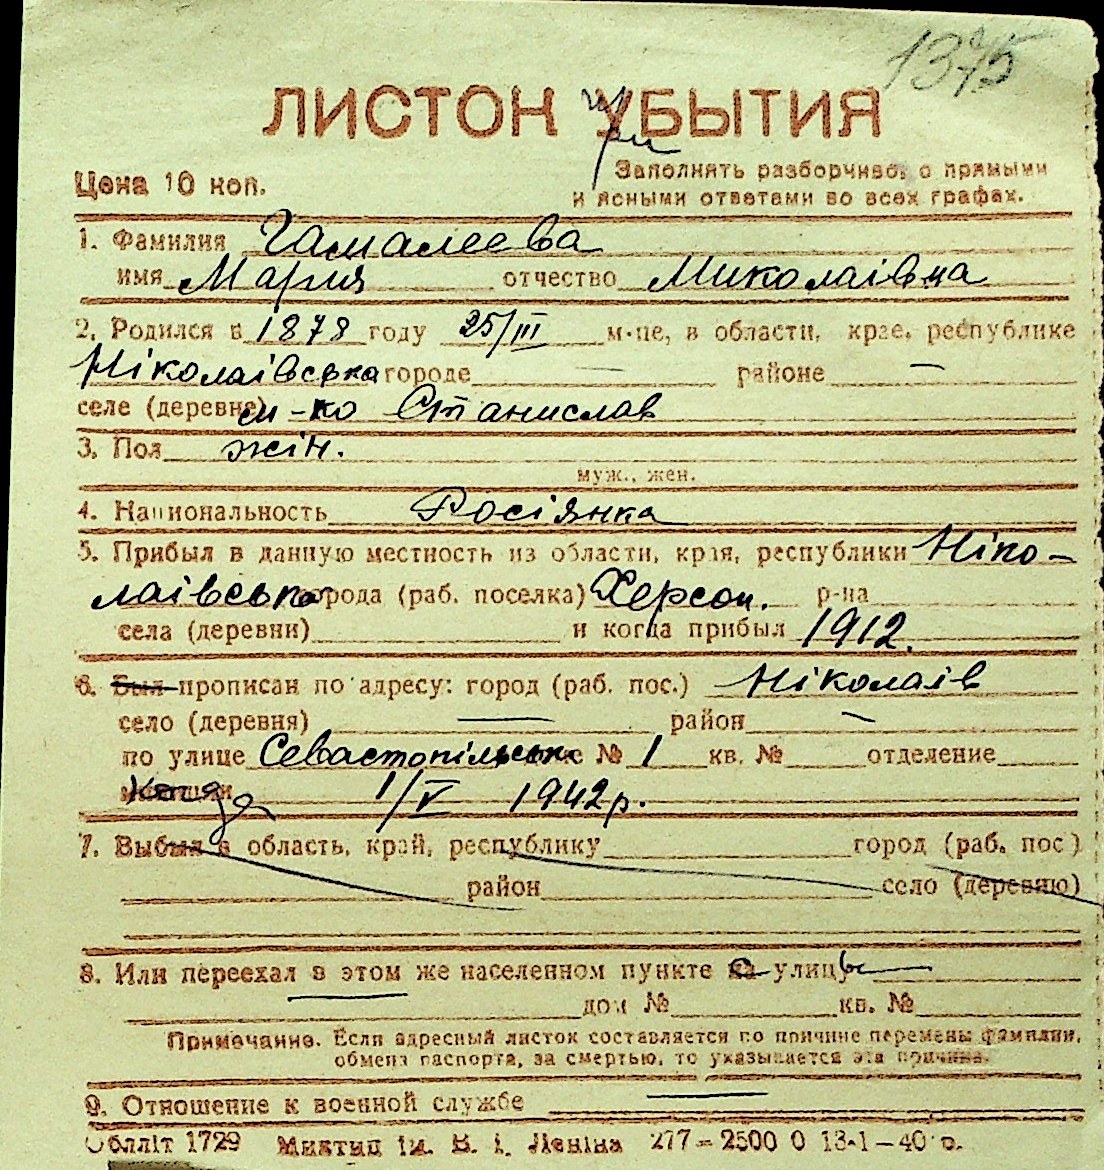 1375
ЛИСТОК УБЫТИЯ
при
Цена 10 коп.
Заполнять разборчиво, с прямыми
и ясными ответами во всех графах.
1. Фамилия Гамалеева
имя Мария отчество Миколаівна
2. Родился в 1878 году 25/III м-це, в области, крае, республике
Ніколаівська городе — районе —
селе (деревне) м-ко Станислав
3. Пол жін.
муж., жен.
4. Национальность Росіянка
5. Прибыл в данную местность из области, края, республики Ніко-
лаівська города (раб. поселка) Херсон. р-на
села (деревни) и когда прибыл 1912.
6. Был прописан по адресу: город (раб. пос.) Ніколаів
село (деревня) — район —
по улице Севастопільськ № 1 кв. № отделение
милиции Когда 1/V 1942 р.
7. Выбыл в область, край, республику город (раб. пос)
район село (деревню)
8. Или переехал в этом же населенном пункте с улицы —
дом № кв. №
Примечание. Если адресный листок составляется по причине перемены фамилии,
обмена паспорта, за смертью, то указывается эта причина.
9. Отношение к военной службе —
Облліт 1729 Миктип ім. В. І. Леніна 277—2500 0 13-1—40 р.